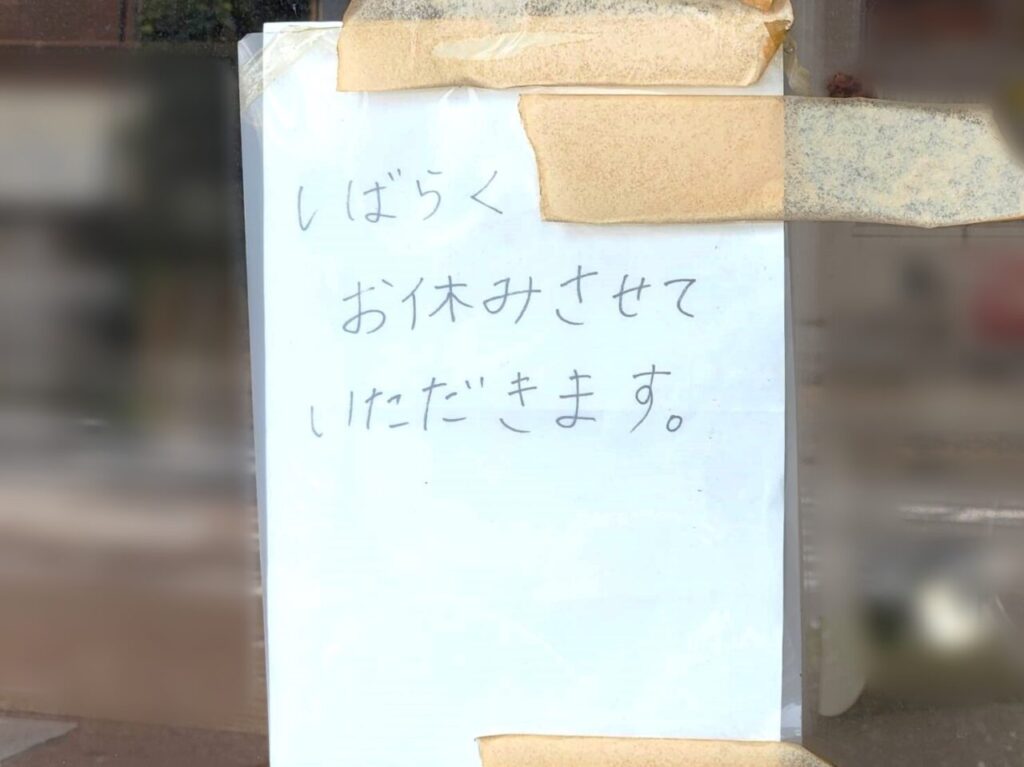 しばらく
お休みさせて
いただきます。